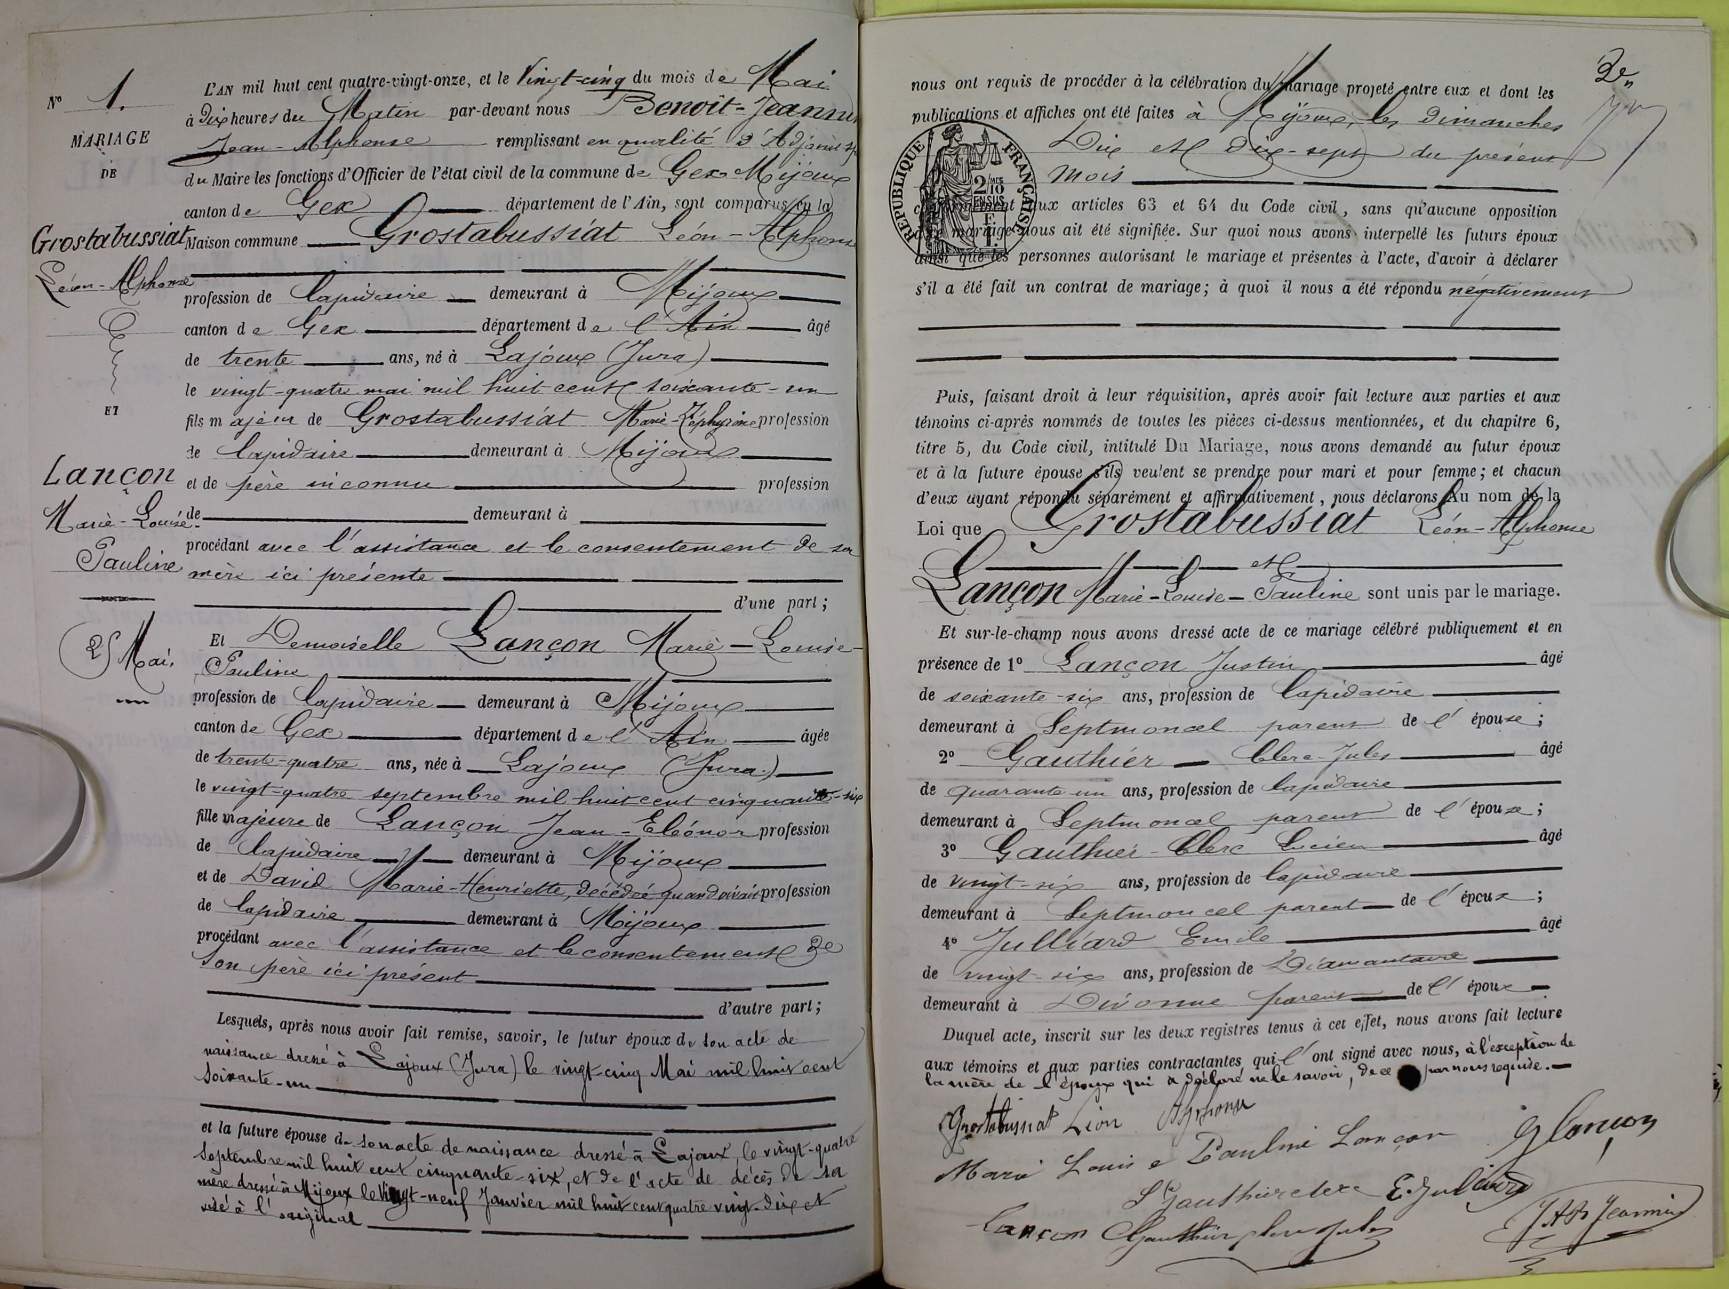 N° 1.
MARIAGE
DE
Grostabussiat
Léon-Alphonse
ET
Lançon
Marie-Louise-
Pauline
25 Mai.
L'AN mil huit cent quatre-vingt-onze, et le Vingt-cinq du mois de Mai
à Dix heures du Matin par-devant nous Benoit-Jeannin
Jean-Alphonse remplissant en qualité d'Adjoint
du Maire les fonctions d'Officier de l'état civil de la commune de Gex-Mijoux
canton de Gex département de l'Ain, sont comparus en la
Maison commune Grostabussiat Léon-Alphonse
profession de lapidaire demeurant à Mijoux
canton de Gex département de l'Ain âgé
de trente ans, né à Lajoux (Jura)
le vingt-quatre mai mil huit cent soixante-un
fils majeur de Grostabussiat Marie-Zéphyrine profession
de lapidaire demeurant à Mijoux
et de père inconnu profession
de demeurant à
procédant avec l'assistance et le consentement de sa
mère ici présente
d'une part;
Et Demoiselle Lançon Marie-Louise-
Pauline
profession de lapidaire demeurant à Mijoux
canton de Gex département de l'Ain âgée
de trente-quatre ans, née à Lajoux (Jura.)
le vingt-quatre septembre mil huit cent cinquante-six
fille majeure de Lançon Jean-Eléonor profession
de lapidaire demeurant à Mijoux
et de David Marie-Henriette, décédée quand vivait profession
de lapidaire demeurant à Mijoux
procédant avec l'assistance et le consentement de
son père ici présent
d'autre part;
Lesquels, après nous avoir fait remise, savoir, le futur époux de son acte de
naissance dressé à Lajoux (Jura) le vingt-cinq Mai mil huit cent
soixante-un
et la future épouse de son acte de naissance dressé à Lajoux, le vingt-quatre
Septembre mil huit cent cinquante-six, et de l'acte de décès de sa
mère dressé à Mijoux le vingt-neuf Janvier mil huit cent quatre vingt-dix et
visé à l'original
2e
nous ont requis de procéder à la célébration du mariage projeté entre eux et dont les
publications et affiches ont été faites à Mijoux, les dimanches
Dix et dix-sept du présent
mois
RÉPUBLIQUE FRANÇAISE
2/10 EN SUS
conformément aux articles 63 et 64 du Code civil, sans qu'aucune opposition
mariage nous ait été signifiée. Sur quoi nous avons interpellé les futurs époux
ainsi que les personnes autorisant le mariage et présentes à l'acte, d'avoir à déclarer
s'il a été fait un contrat de mariage; à quoi il nous a été répondu négativement
Puis, faisant droit à leur réquisition, après avoir fait lecture aux parties et aux
témoins ci-après nommés de toutes les pièces ci-dessus mentionnées, et du chapitre 6,
titre 5, du Code civil, intitulé Du Mariage, nous avons demandé au futur époux
et à la future épouse s'ils veulent se prendre pour mari et pour femme; et chacun
d'eux ayant répondu séparément et affirmativement, nous déclarons au nom de la
Loi que Grostabussiat Léon-Alphonse
et
Lançon Marie-Louise-Pauline sont unis par le mariage.
Et sur-le-champ nous avons dressé acte de ce mariage célébré publiquement et en
présence de 1° Lançon Justin âgé
de soixante-six ans, profession de lapidaire
demeurant à Septmoncel parent de l'épouse;
2° Gauthier-Clerc-Jules âgé
de quarante-un ans, profession de lapidaire
demeurant à Septmoncel parent de l'épouse;
3° Gauthier-Clerc Lucien âgé
de vingt-six ans, profession de lapidaire
demeurant à Septmoncel parent de l'époux;
4° Julliard Emile âgé
de vingt-six ans, profession de Diamantaire
demeurant à Divonne parent de l'époux
Duquel acte, inscrit sur les deux registres tenus à cet effet, nous avons fait lecture
aux témoins et aux parties contractantes qui l'ont signé avec nous, à l'exception de
la mère de l'époux qui a déclaré ne le savoir, de ce par nous requise.
Grostabussiat Léon Alphonse
Marie Louise Pauline Lançon J Lançon
L Gauthier clerc E. Julliard
Lançon Gauthier clerc Jules JAB Jeannin